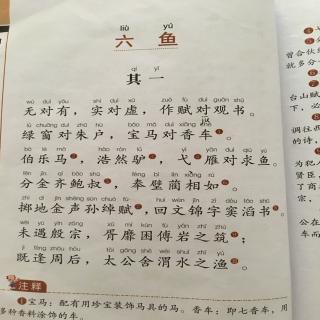 liù yú
六 鱼
qí yī
其一
wú duì yǒu shí duì xū zuò fù duì guān shū
无对有，实对虚，作赋对观书。
lǜ chuāng duì zhū hù bǎo mǎ duì xiāng chē
绿窗对朱户，宝马对香车①。
bó lè mǎ hào rán lǘ yì yàn duì qiú yú
伯乐马②，浩然驴③，弋④雁对求鱼。
fēn jīn qí bào shū fèng bì lìn xiàng rú
分金齐鲍叔⑤，奉璧蔺相如⑥。
zhì dì jīn shēng sūn chuò fù huí wén jǐn zì dòu tāo shū
掷地金声孙绰赋⑦，回文锦字窦滔书⑧。
wèi yù yīn zōng xū mí kùn fù yán zhī zhù
未遇殷宗，胥靡困傅岩之筑⑨；
jì féng zhōu hòu tài gōng shě wèi shuǐ zhī yú
既逢周后，太公舍渭水之渔⑩。
注释
①宝马：配有用珍宝装饰马具的马。香车：即七香车，用
多种香料涂饰的车。
曾合伙
就多分
台山赋
下，必
调往西
的诗，
为犯
贤臣，
了商
车而